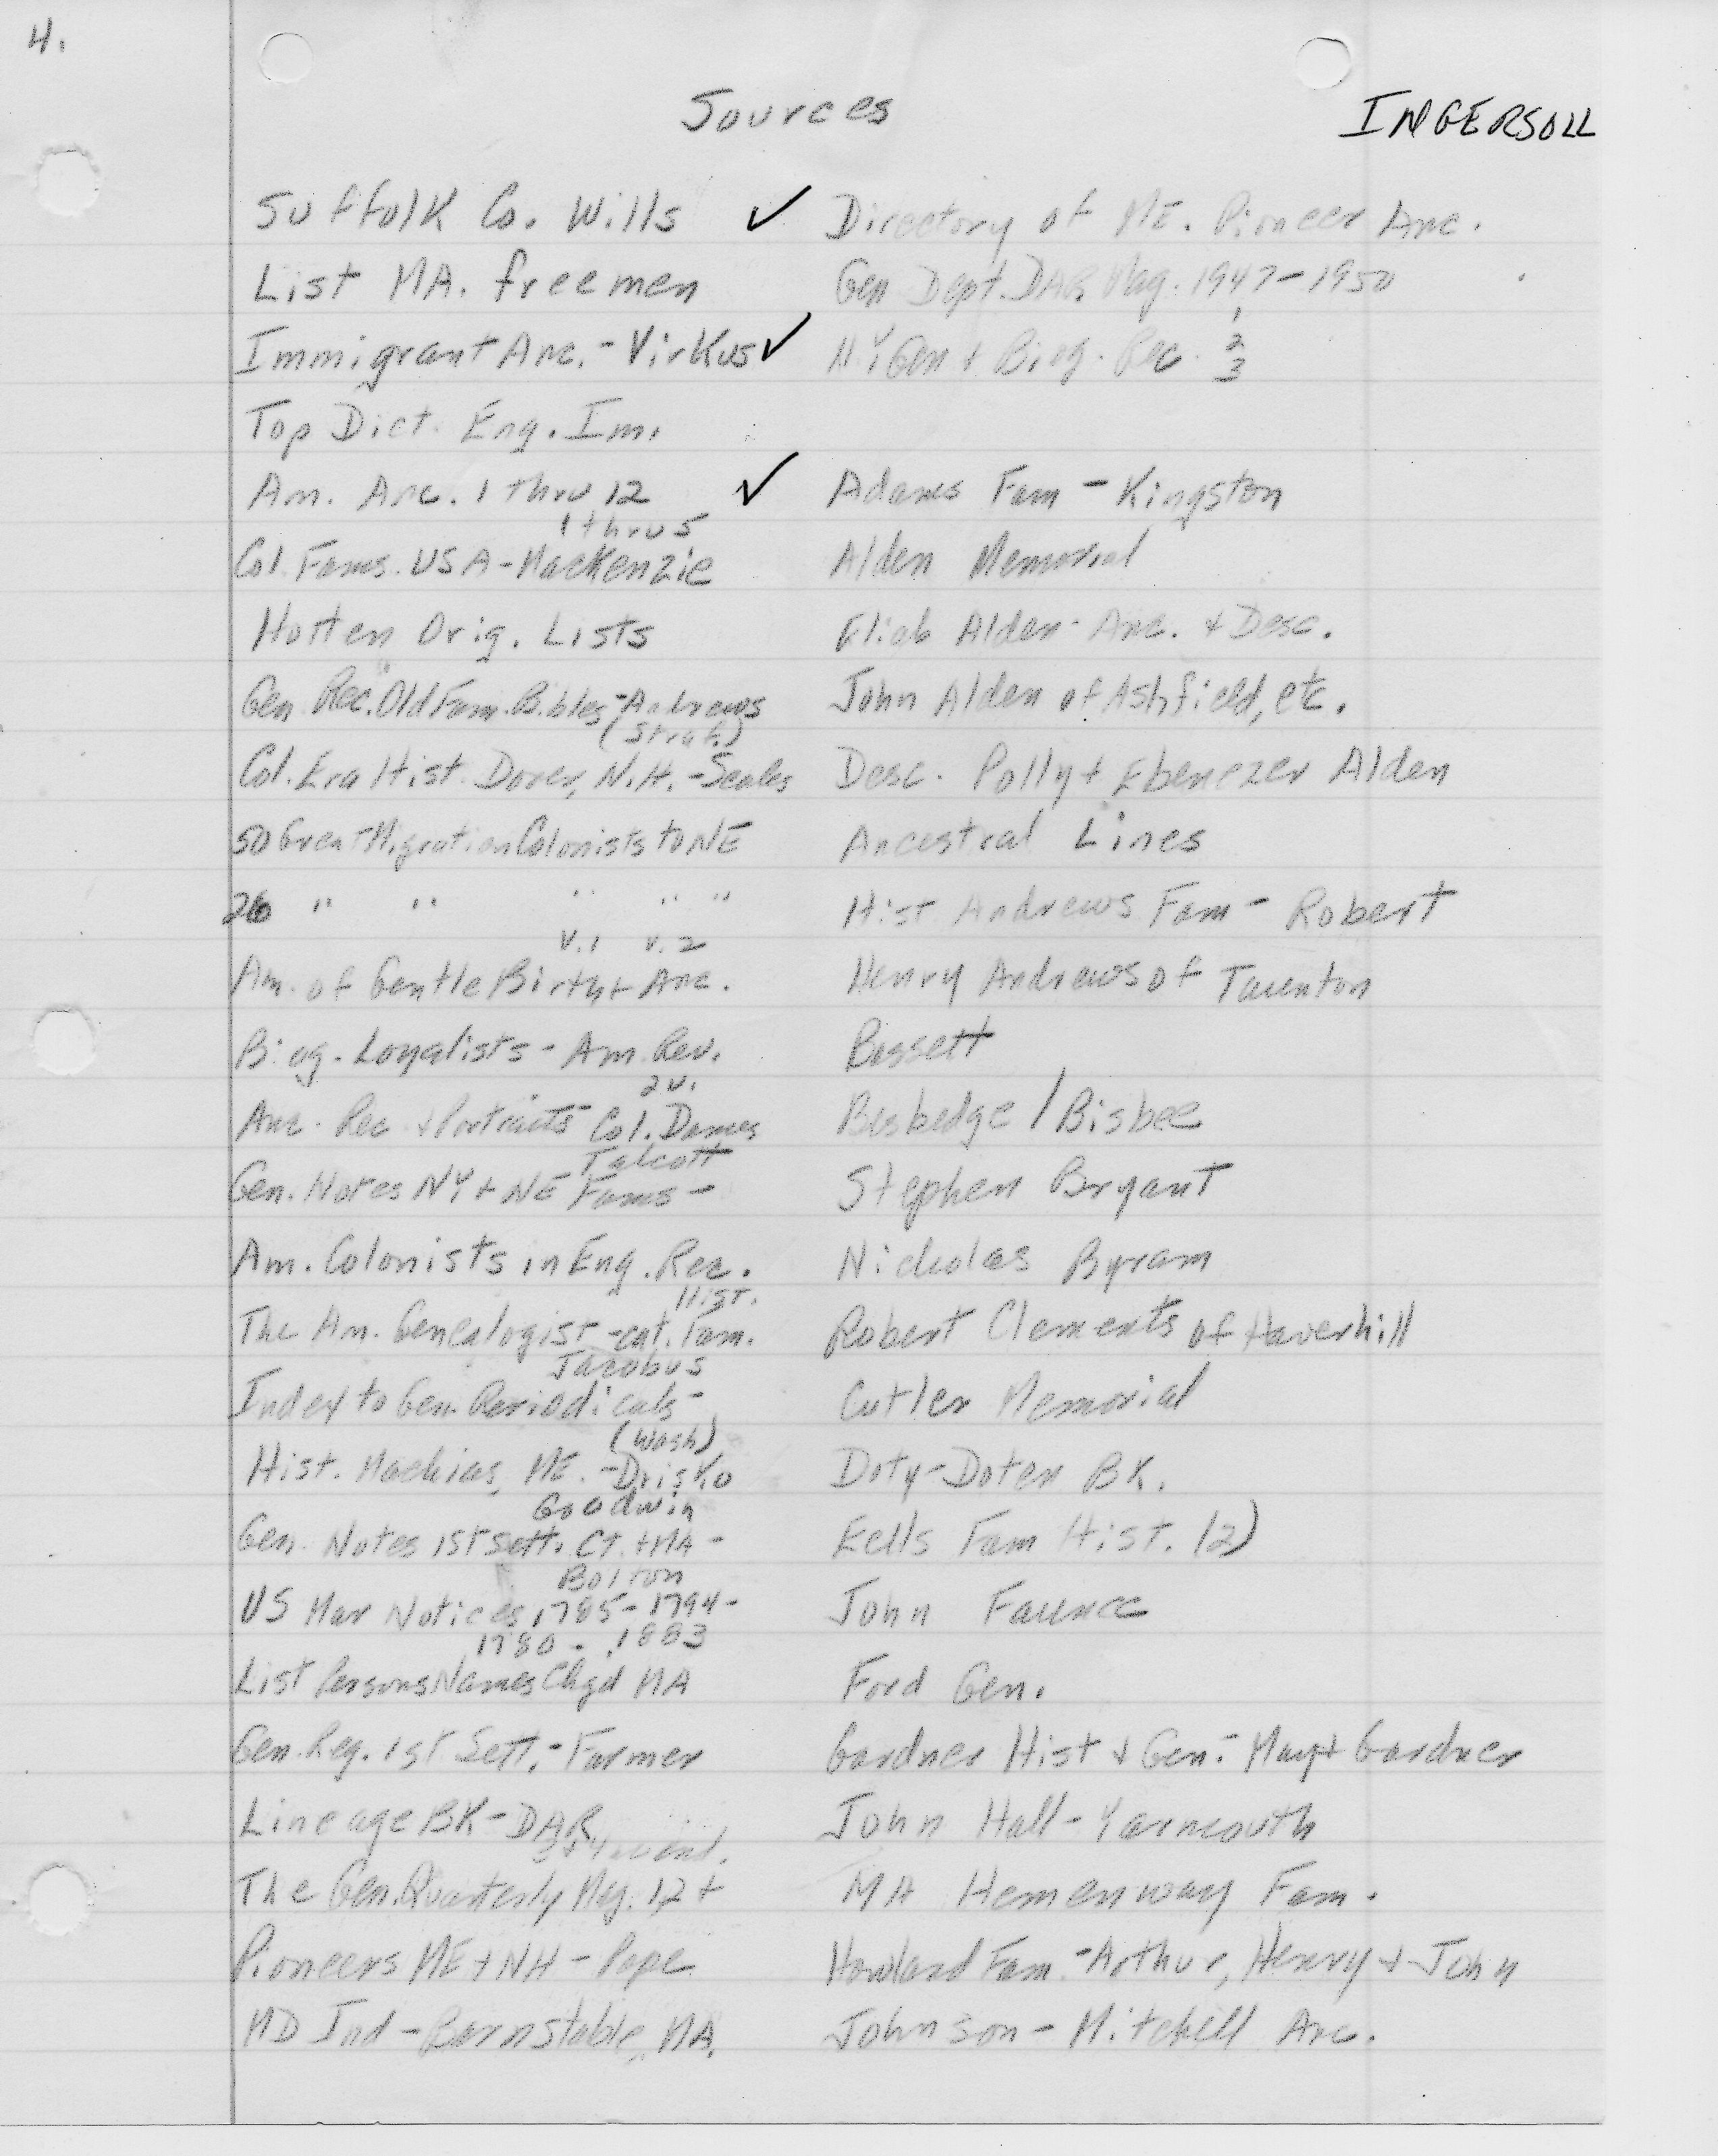 4.
Sources
INGERSOLL
Suffolk Co. Wills ✓
List MA. freemen
Immigrant Anc. - Virkus ✓
Top Dict. Eng. Im.
Am. Anc. 1 thru 12 ✓
1 thru 5
Col. Fams. USA - MacKenzie
Hotten Orig. Lists
Gen. Rec. Old Fam. Bibles - Andrews
(Straf.)
Col. Era Hist. Dover, N.H. - Scales
50 Great Migration Colonists to NE
26 " " " " "
V.1 V.2
Am. of Gentle Birth + Anc.
Biog. Loyalists - Am. Rev.
2 V.
Anc. Rec. + Portraits Col. Dames
Talcott
Gen. Notes NY + NE Fams -
Am. Colonists in Eng. Rec.
Hist.
The Am. Genealogist - cat. Fam.
Jacobus
Index to Gen. Periodicals -
(Wash)
Hist. Machias, ME. - Drisko
Goodwin
Gen. Notes 1st Sett. CT. + MA -
Bolton
US Mar Notices, 1785 - 1794 -
1780 - 1883
List Persons Names Chgd MA
Gen. Reg. 1st Sett. - Farmer
Lineage BK - DAR
The Gen. Quarterly Mag. 12 +
Pioneers ME + NH - Pope
MD Ind - Barnstable, MA.
Directory of ME. Pioneer Anc.
Gen Dept. DAR Mag. 1947 - 1950
1
NY Gen + Biog. Rec. 2
3
Adams Fam - Kingston
Alden Memorial
Eliab Alden - Anc. + Desc.
John Alden of Ashfield, etc.
Desc. Polly + Ebenezer Alden
Ancestral Lines
Hist Andrews Fam - Robert
Henry Andrews of Taunton
Bassett
Besbedge / Bisbee
Stephen Bryant
Nicholas Byram
Robert Clements of Haverhill
Cutler Memorial
Doty - Doten BK.
Eells Fam Hist. (2)
John Faunce
Ford Gen.
Gardner Hist + Gen: Mayt Gardner
John Hall - Yarmouth
MA Hemenway Fam.
Howland Fam. - Arthur, Henry + John
Johnson - Mitchell Anc.